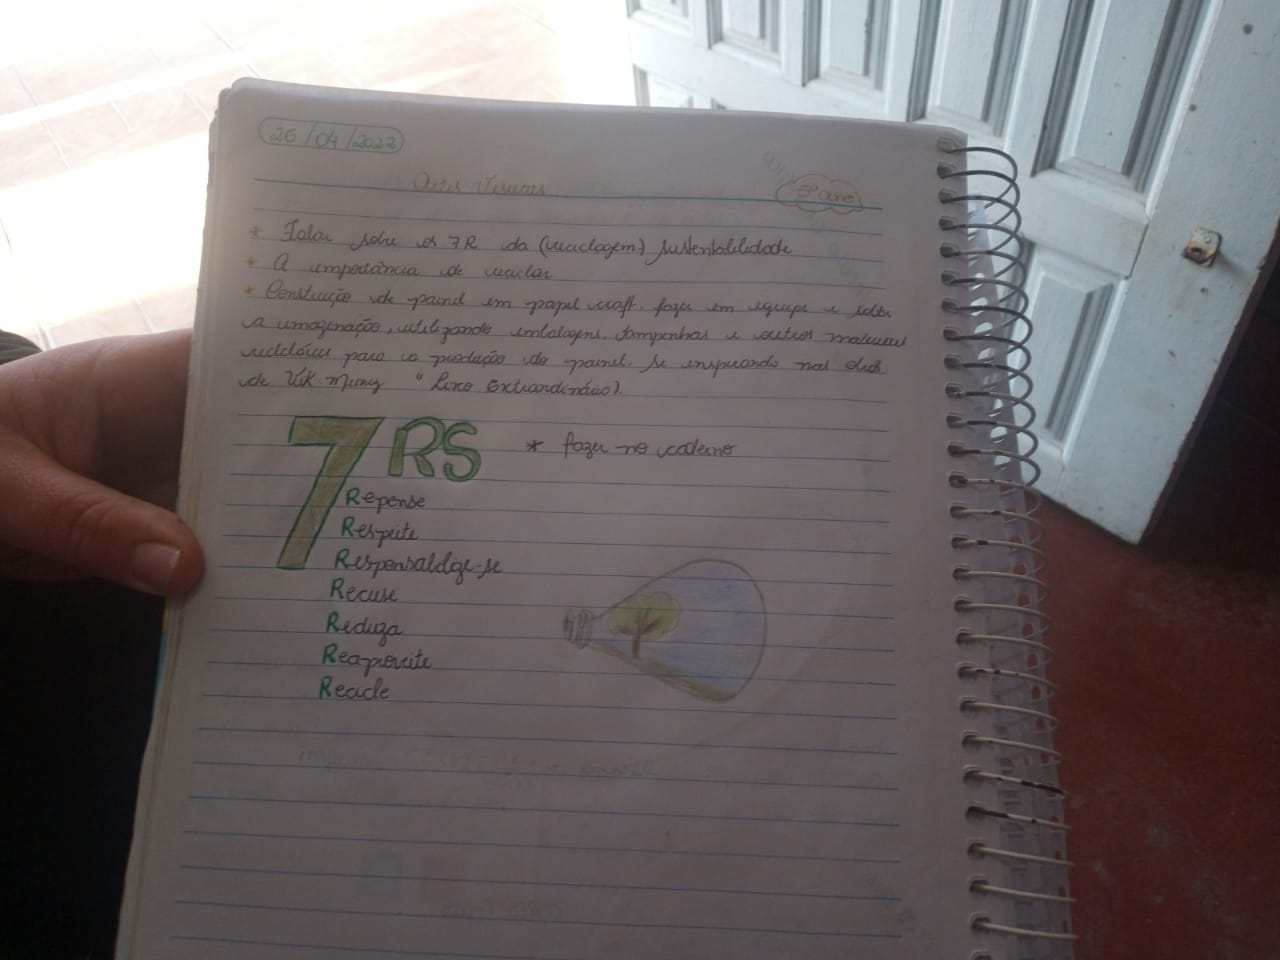 26/04/2022
Artes Visuais
5º ano
* Falar sobre os 7R da (reciclagem) sustentabilidade
* A importância de reciclar
* Construção de painel em papel craft, fazer em equipe e soltar
a imaginação, utilizando embalagens, tampinhas e outros materiais
recicláveis para a produção do painel. Se inspirando nas obras
de Vik Muniz "Lixo Extraordinário).
7 RS * fazer no caderno
Repense
Respeite
Responsabilize-se
Recuse
Reduza
Reaproveite
Recicle